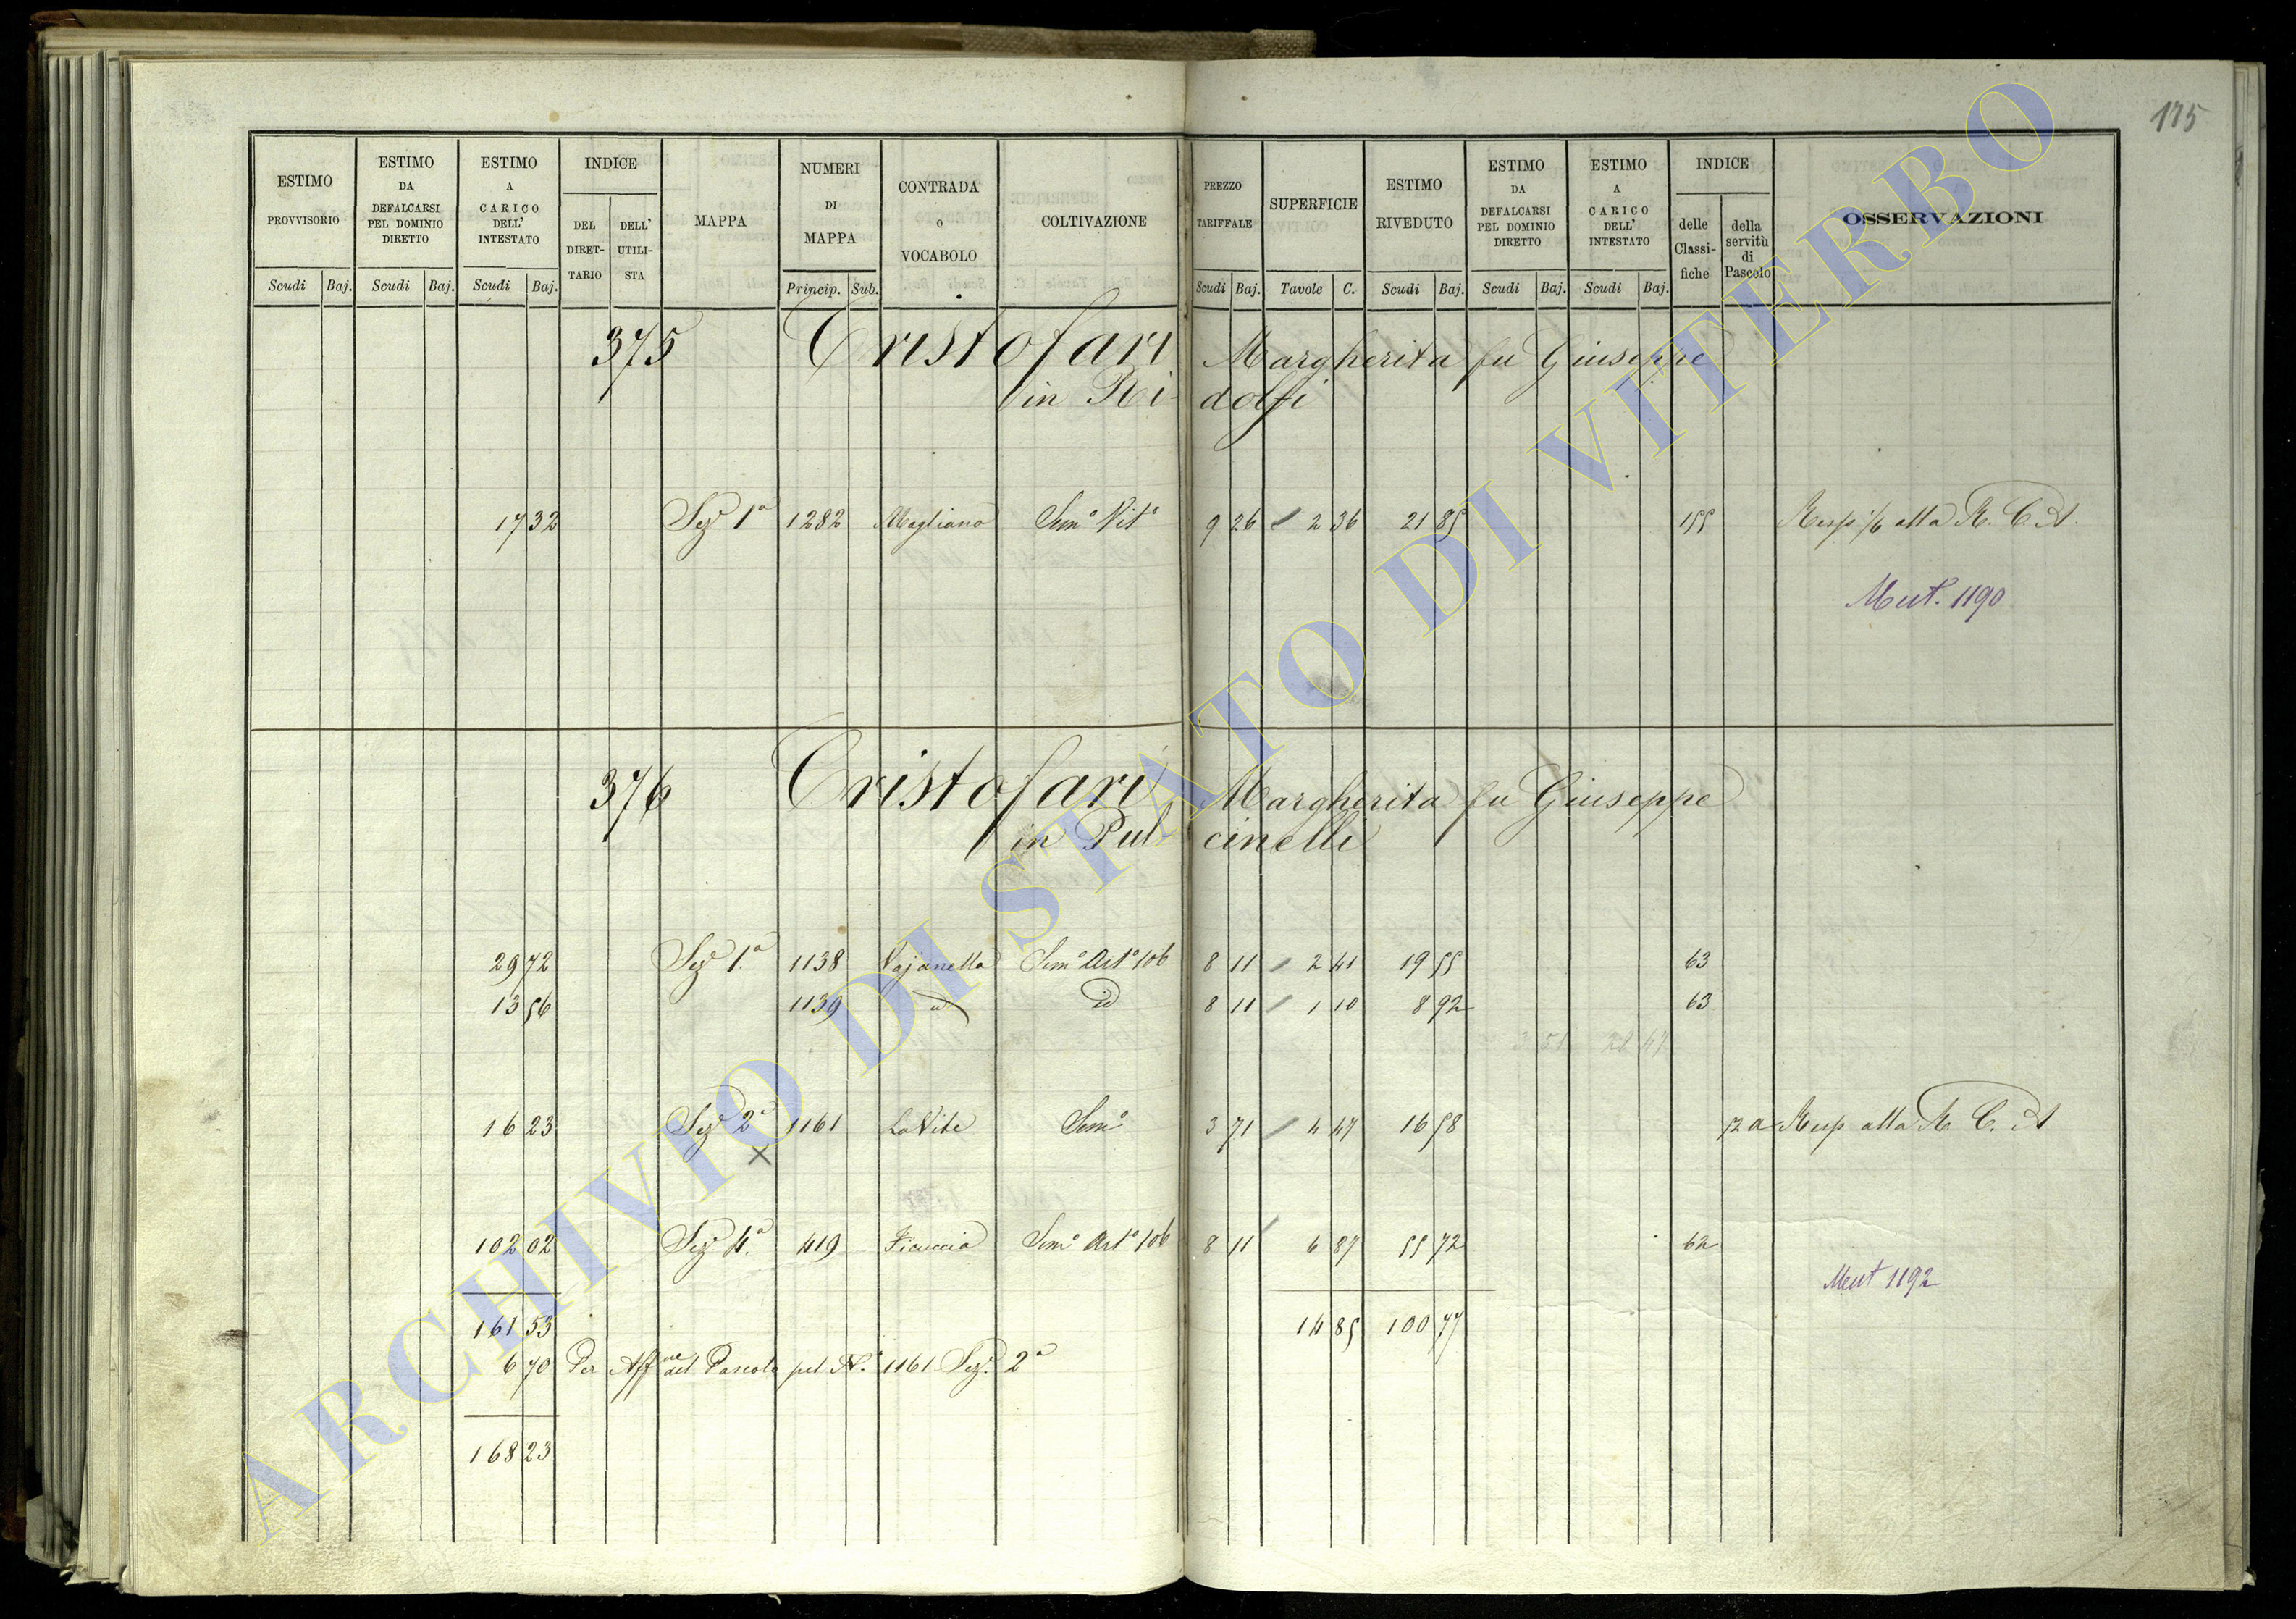 175
ESTIMO PROVVISORIO Scudi Baj.
ESTIMO DA DEFALCARSI PEL DOMINIO DIRETTO Scudi Baj.
ESTIMO A CARICO DELL' INTESTATO Scudi Baj.
INDICE DEL DIRETTARIO DELL' UTILISTA
MAPPA
NUMERI DI MAPPA Princip. Sub.
CONTRADA o VOCABOLO
COLTIVAZIONE
PREZZO TARIFFALE Scudi Baj.
SUPERFICIE Tavole C.
ESTIMO RIVEDUTO Scudi Baj.
ESTIMO DA DEFALCARSI PEL DOMINIO DIRETTO Scudi Baj.
ESTIMO A CARICO DELL' INTESTATO Scudi Baj.
INDICE delle Classifiche della servitù di Pascolo
OSSERVAZIONI
375 Cristofari Margherita fu Giuseppe
in Ridolfi
17 32 Sezе 1a 1282 Magliano Semo Vito 9 26 2 36 21 85 155 Resp alla R. C. A.
Mut. 1190
376 Cristofari Margherita fu Giuseppe
in Pulcinelli
29 72 Seze 1a 1138 Vajanella Semo Arto 106 8 11 2 41 19 55 63
13 56 1139 id 8 11 1 10 8 92 63
3 51 21 47
16 23 Seze 2a 1161 La Vite Semo 3 71 4 47 16 58 72 a Resp alla R. C. A
X
102 02 Seze 4a 419 Ficuccia Semo Arto 106 8 11 6 87 55 72 62
Mut 1192
161 53 14 85 100 77
6 70 Per Affne del Pascolo pel N. 1161 Seze 2a
168 23
ARCHIVIO DI STATO DI VITERBO